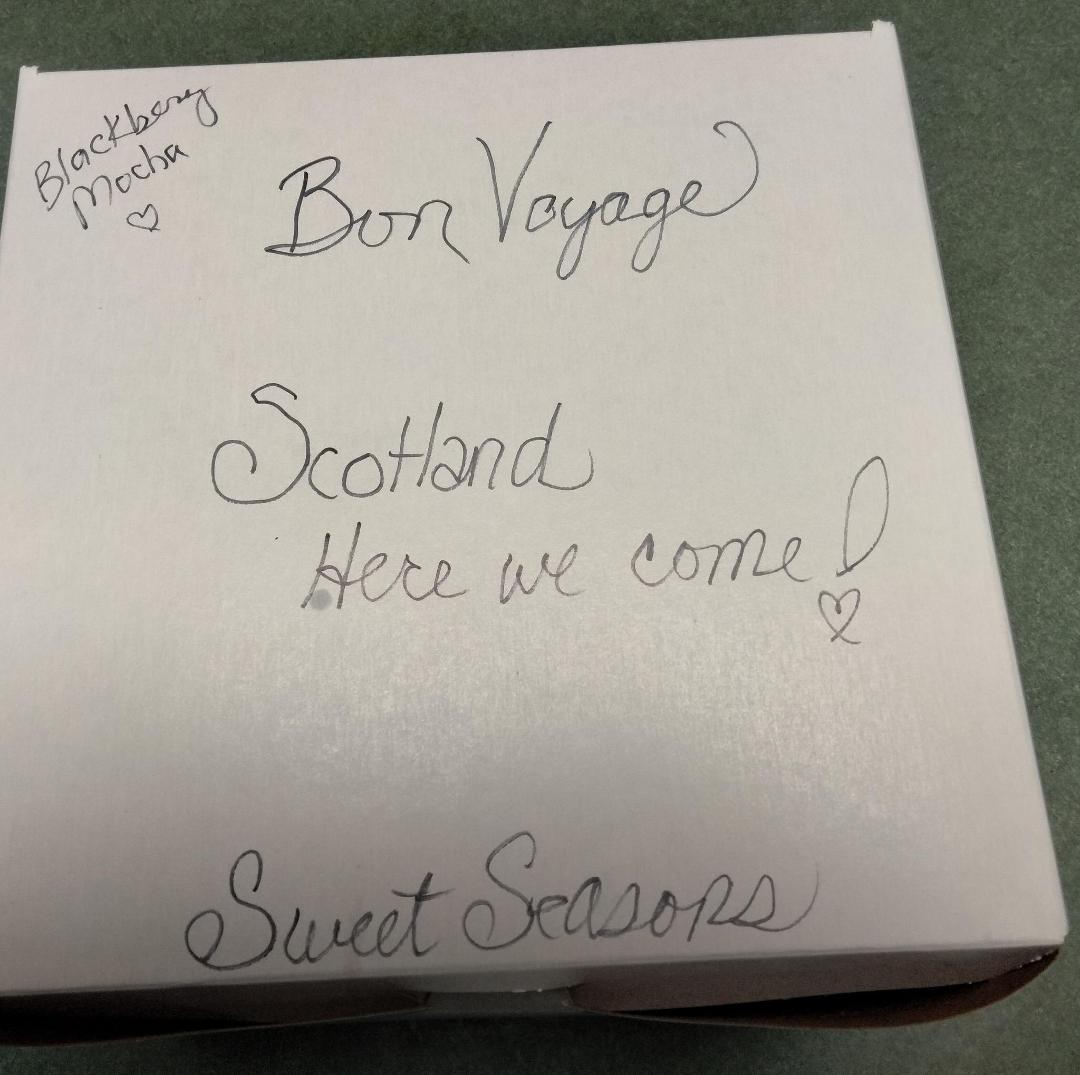 Blackberry
Mocha
♡
Bon Voyage
Scotland
Here we come!
♡
Sweet Seasons